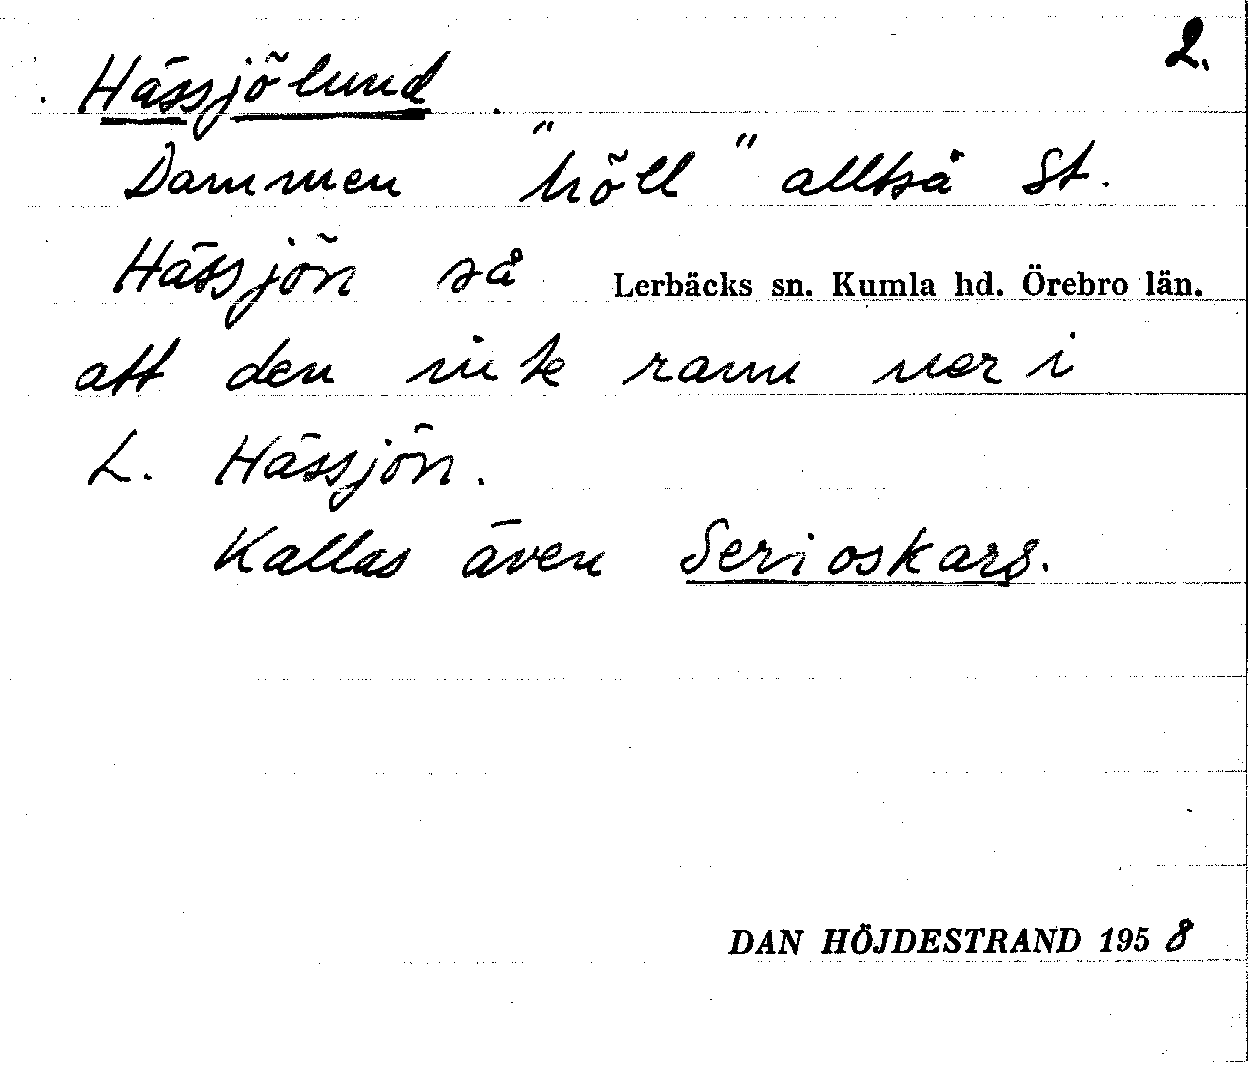 2.
Hässjölund.
Dammen "höll" alltså St.
Hässjön så
Lerbäcks sn. Kumla hd. Örebro län.
att den inte rann ner i
L. Hässjön.
Kallas även Serioskars.
DAN HÖJDESTRAND 1958